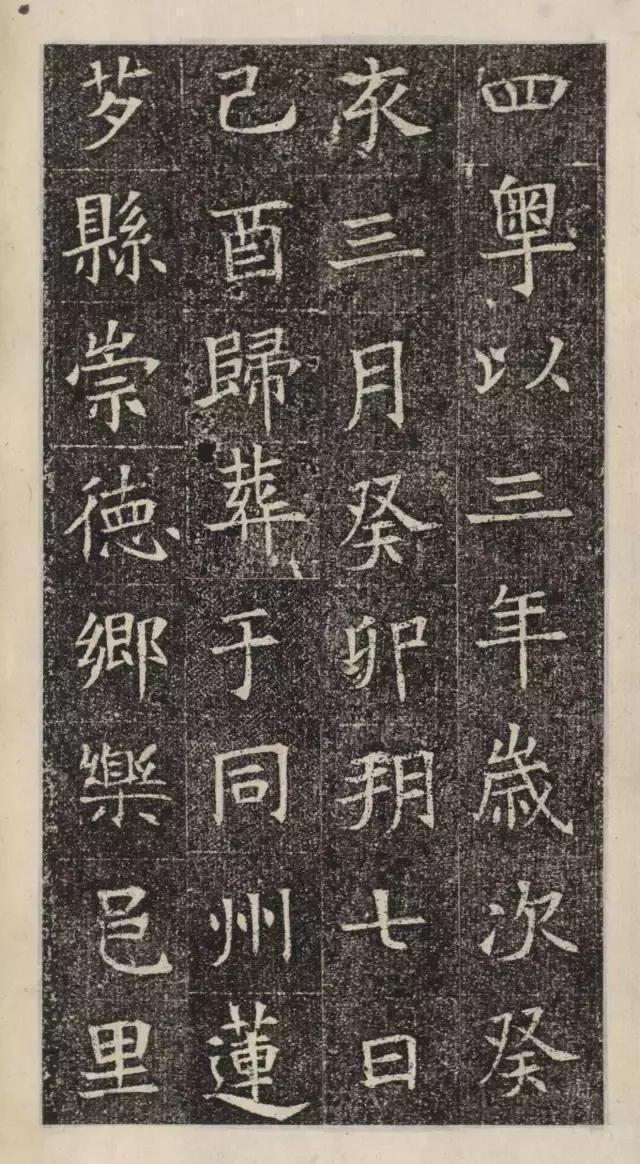 四粤以三年歳次癸
亥三月癸卯朔七日
己酉歸葬于同州蓮
芍縣崇德鄉樂邑里